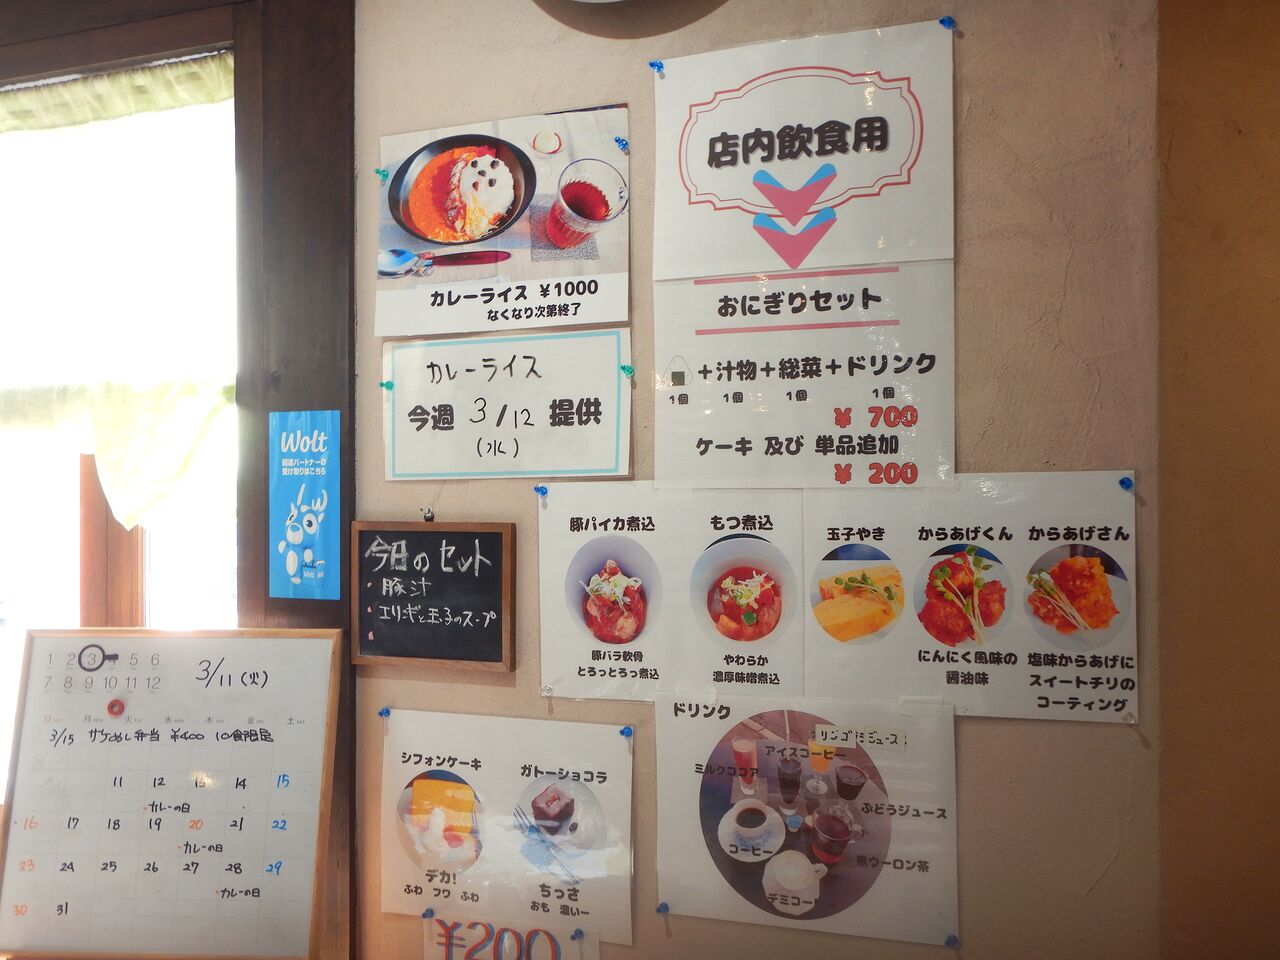 店内飲食用
おにぎりセット
+汁物+総菜+ドリンク
1個 1個 1個 1個
¥ 700
ケーキ 及び 単品追加
¥ 200
カレーライス ¥1000
なくなり次第終了
カレーライス
今週 3/12 提供
(水)
Wolt
配達パートナーの
受け取りはこちら
今日のセット
・豚汁
・エリンギと玉子のスープ
豚パイカ煮込
豚バラ軟骨
とろっとろっ煮込
もつ煮込
やわらか
濃厚味噌煮込
玉子やき
からあげくん
にんにく風味の
醤油味
からあげさん
塩味からあげに
スイートチリの
コーティング
1 2 3 4 5 6
7 8 9 10 11 12
3/11(火)
日 SUN 月 MON 火 TUE 水 WED 木 THU 金 FRI 土 SAT
3/15 サケめし弁当 ¥400 10食限定
11 12 13 14 15
カレーの日
16 17 18 19 20 21 22
カレーの日
23 24 25 26 27 28 29
カレーの日
30 31
シフォンケーキ
デカ!
ふわ フワ ふわ
ガトーショコラ
ちっさ
おも 濃いー
¥200
ドリンク
リンゴ
ジュース
アイスコーヒー
ミルクココア
ぶどうジュース
コーヒー
黒ウーロン茶
デミコーヒー